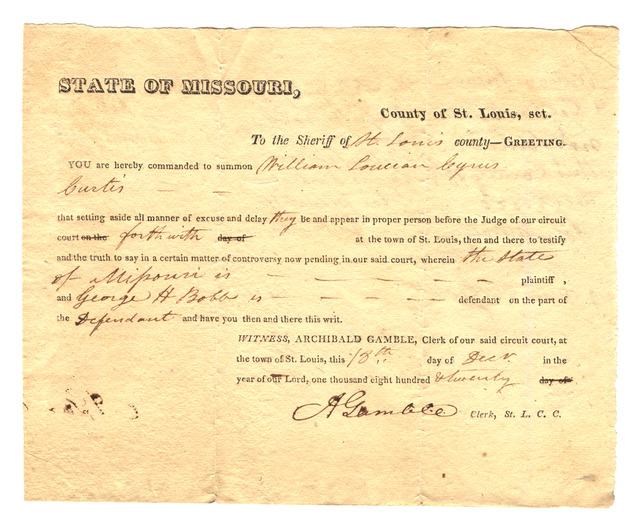 STATE OF MISSOURI,
County of St. Louis, sct.
To the Sheriff of St. Louis county—GREETING.
YOU are hereby commanded to summon William Cyrus
Curtis — —
that setting aside all manner of excuse and delay they be and appear in proper person before the Judge of our circuit
court on the forthwith day of at the town of St. Louis, then and there to testify
and the truth to say in a certain matter of controversy now pending in our said court, wherein the State
of Missouri is — — — — — plaintiff ,
and George H Bobb is — — — — defendant on the part of
the Defendant and have you then and there this writ.
WITNESS, ARCHIBALD GAMBLE, Clerk of our said circuit court, at
the town of St. Louis, this 18th day of Decr in the
year of our Lord, one thousand eight hundred & twenty day of
A Gamble Clerk, St. L. C. C.